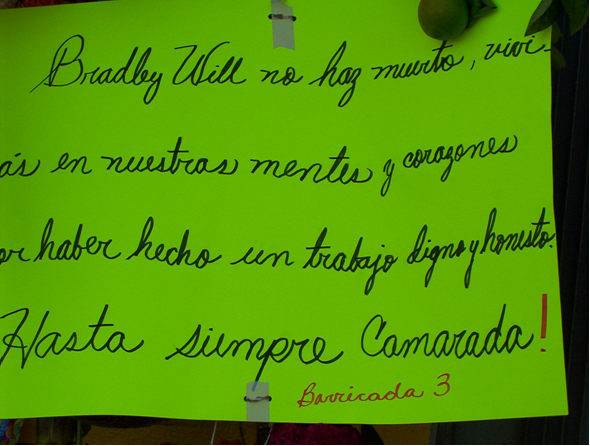 Bradley Will no haz muerto, vivi-
ás en nuestras mentes y corazones
or haber hecho un trabajo digno y honesto.
Hasta siempre Camarada!
Barricada 3